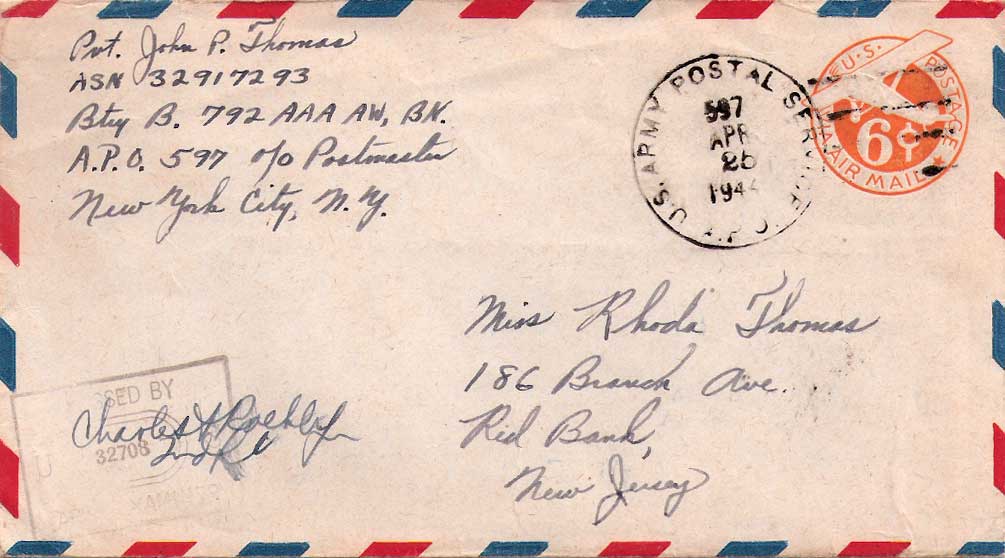 Pvt. John P. Thomas
ASN 32917293
Btry B. 792 AAA AW, BN.
A.P.O. 597 c/o Postmaster
New York City, N.Y.
U.S. ARMY POSTAL SERVICE
597
APR
1944
A.P.O.
U.S. POSTAGE
6¢
VIA AIR MAIL
Miss Rhoda Thomas
186 Branch Ave.
Red Bank,
New Jersey
SED BY
Charles
32708
2nd Lt
U